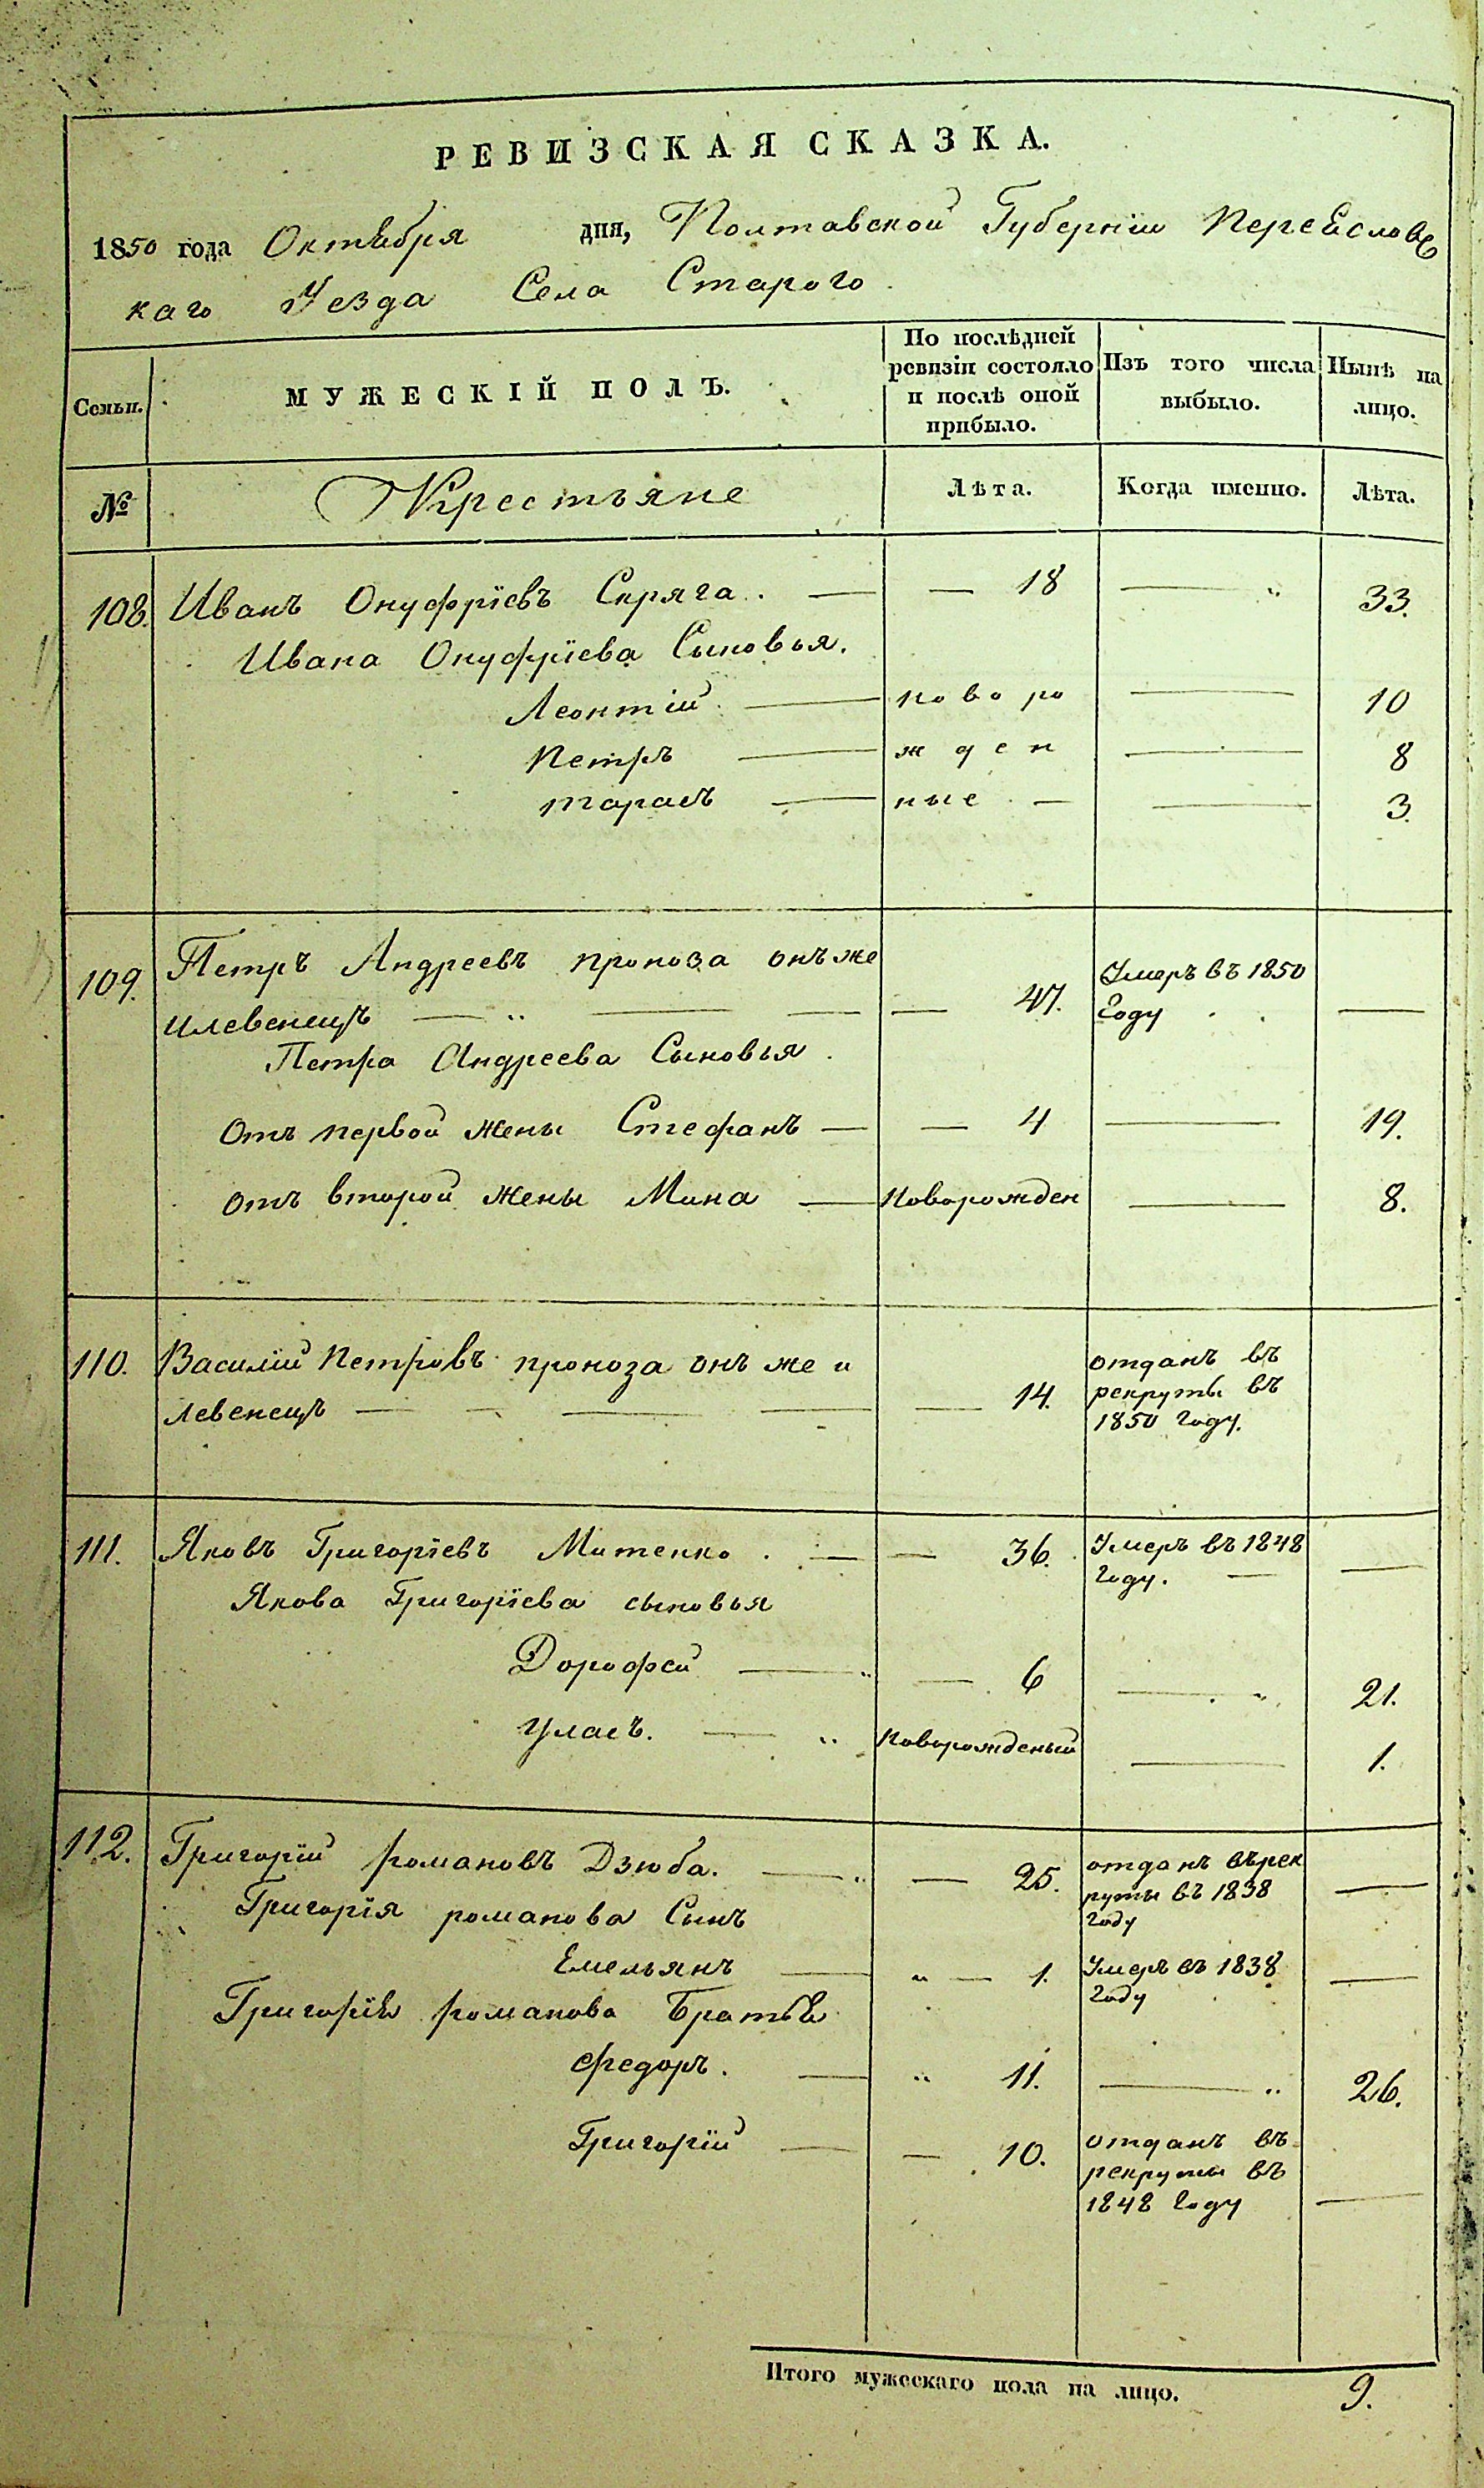 РЕВИЗСКАЯ СКАЗКА.
1850 года Октября дня, Полтавской Губернiи Переяславс
каго Уезда Села Старого
Семьи. МУЖЕСКIЙ ПОЛЪ. По послѣдней ревизiи состояло и послѣ оной прибыло. Изъ того числа выбыло. Нынѣ на лицо.
№ Крестьяне Лѣта. Когда именно. Лѣта.
108. Иванъ Онуфрiевъ Скряга. — — 18 — " 33.
Ивана Онуфрiева Сыновья.
Леонтiй — новоро — 10
Петръ — жден — 8
Тарасъ — ные — — 3.
109. Петръ Андреевъ проноза онъже
илевенецъ — " — — — 47. Умеръ въ 1850 Году —
Петра Андреева Сыновья
Отъ первой жены Стефанъ — — 4 — 19.
Отъ второй жены Мина — Новорожден — 8.
110. Василiй Петровъ проноза онъ же и
Левенецъ — — — — — 14. отданъ въ рекруты въ 1850 Году.
111. Яковъ Григорiевъ Митенко. — — 36. Умеръ въ 1848 Году. — —
Якова Григорiева сыновья
Дорофей — " — 6 — " 21.
Уласъ. — " Новорожденый — 1.
112. Григорiй романовъ Дзюба. — " — 25. отданъ върек руты въ 1838 Году —
Григорiя романова Сынъ
Емельянъ — " — 1. Умеръ въ 1838 Году —
Григорiя романова Братья
Федоръ. — " 11. — " 26.
Григорiй — — 10. отданъ въ рекруты въ 1848 Году —
Итого мужескаго пола на лицо. 9.